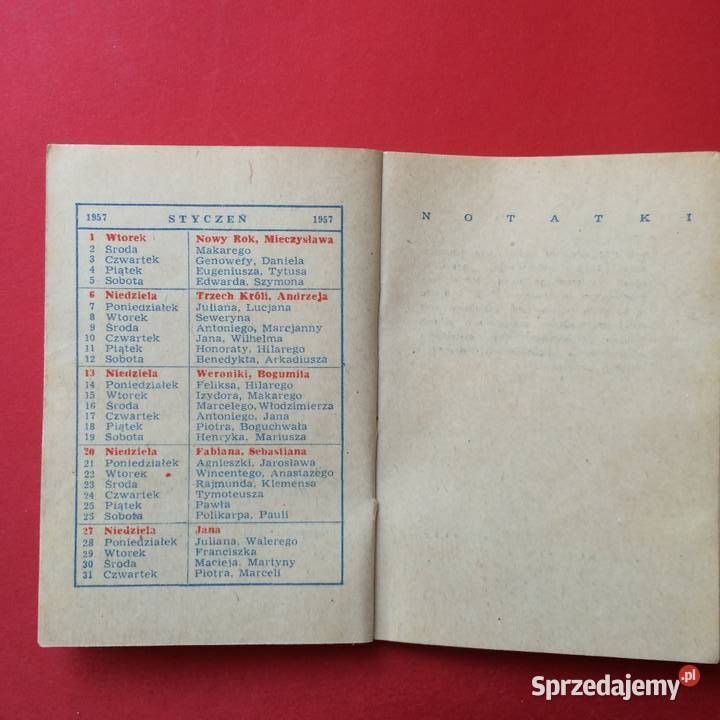 1957 STYCZEŃ 1957
1 Wtorek Nowy Rok, Mieczysława
2 Środa Makarego
3 Czwartek Genowefy, Daniela
4 Piątek Eugeniusza, Tytusa
5 Sobota Edwarda, Szymona
6 Niedziela Trzech Króli, Andrzeja
7 Poniedziałek Juliana, Lucjana
8 Wtorek Seweryna
9 Środa Antoniego, Marcjanny
10 Czwartek Jana, Wilhelma
11 Piątek Honoraty, Hilarego
12 Sobota Benedykta, Arkadiusza
13 Niedziela Weroniki, Bogumiła
14 Poniedziałek Feliksa, Hilarego
15 Wtorek Izydora, Makarego
16 Środa Marcelego, Włodzimierza
17 Czwartek Antoniego, Jana
18 Piątek Piotra, Boguchwała
19 Sobota Henryka, Mariusza
20 Niedziela Fabiana, Sebastiana
21 Poniedziałek Agnieszki, Jarosława
22 Wtorek Wincentego, Anastazego
23 Środa Rajmunda, Klemensa
24 Czwartek Tymoteusza
25 Piątek Pawła
25 Sobota Polikarpa, Pauli
27 Niedziela Jana
28 Poniedziałek Juliana, Walerego
29 Wtorek Franciszka
30 Środa Macieja, Martyny
31 Czwartek Piotra, Marceli
NOTATKI
Sprzedajemy.pl